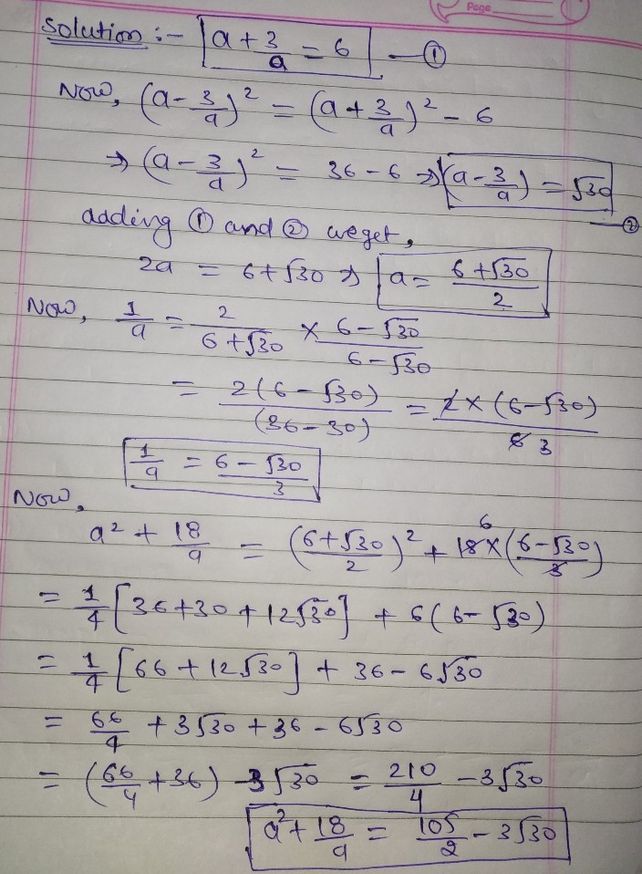 Page
Solution :- a + 3/a = 6 —①
Now, (a - 3/a)² = (a + 3/a)² - 6
⇒ (a - 3/a)² = 36 - 6 ⇒ (a - 3/a) = √30 —②
adding ① and ② we get,
2a = 6 + √30 ⇒ a = (6 + √30)/2
Now, 1/a = 2/(6 + √30) × (6 - √30)/(6 - √30)
= 2(6 - √30)/(36 - 30) = 2 × (6 - √30)/6 3
1/a = (6 - √30)/3
Now,
a² + 18/a = ((6 + √30)/2)² + 18 6 × ((6 - √30)/3)
= 1/4 [36 + 30 + 12√30] + 6(6 - √30)
= 1/4 [66 + 12√30] + 36 - 6√30
= 66/4 + 3√30 + 36 - 6√30
= (66/4 + 36) - 3√30 = 210/4 - 3√30
a² + 18/a = 105/2 - 3√30